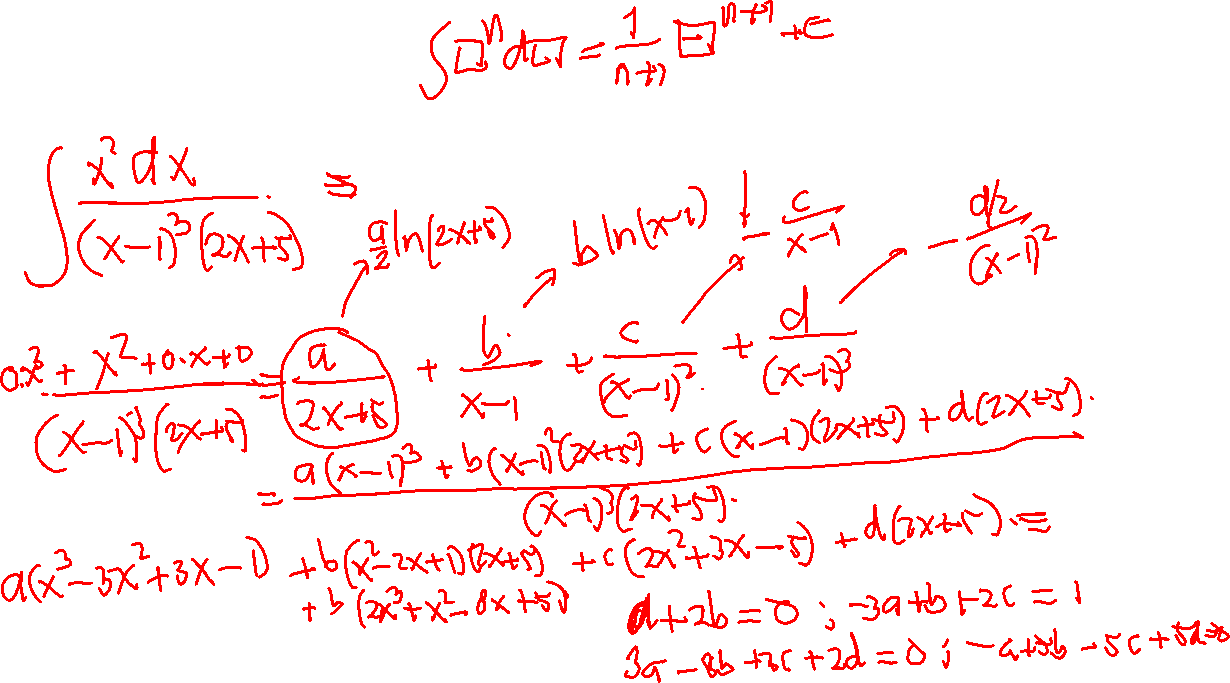 ∫□ⁿ d□ = 1/(n+1) □ⁿ⁺¹ + C
∫ x² dx / ((x−1)³(2x+5)) =
a/2 ln(2x+5) b ln(x−1) − c/(x−1) − (d/2)/(x−1)²
(0.x³ + x² + 0.x + 0)/((x−1)³(2x+5)) = a/(2x+5) + b/(x−1) + c/(x−1)² + d/(x−1)³
= (a(x−1)³ + b(x−1)²(2x+5) + c(x−1)(2x+5) + d(2x+5))/((x−1)³(2x+5))
a(x³−3x²+3x−1) + b(x²−2x+1)(2x+5) + c(2x²+3x−5) + d(2x+5) =
+ b(2x³+x²−8x+5)
a+2b=0 ; −3a+b+2c=1
3a−8b+3c+2d=0 ; −a+5b−5c+5d=0